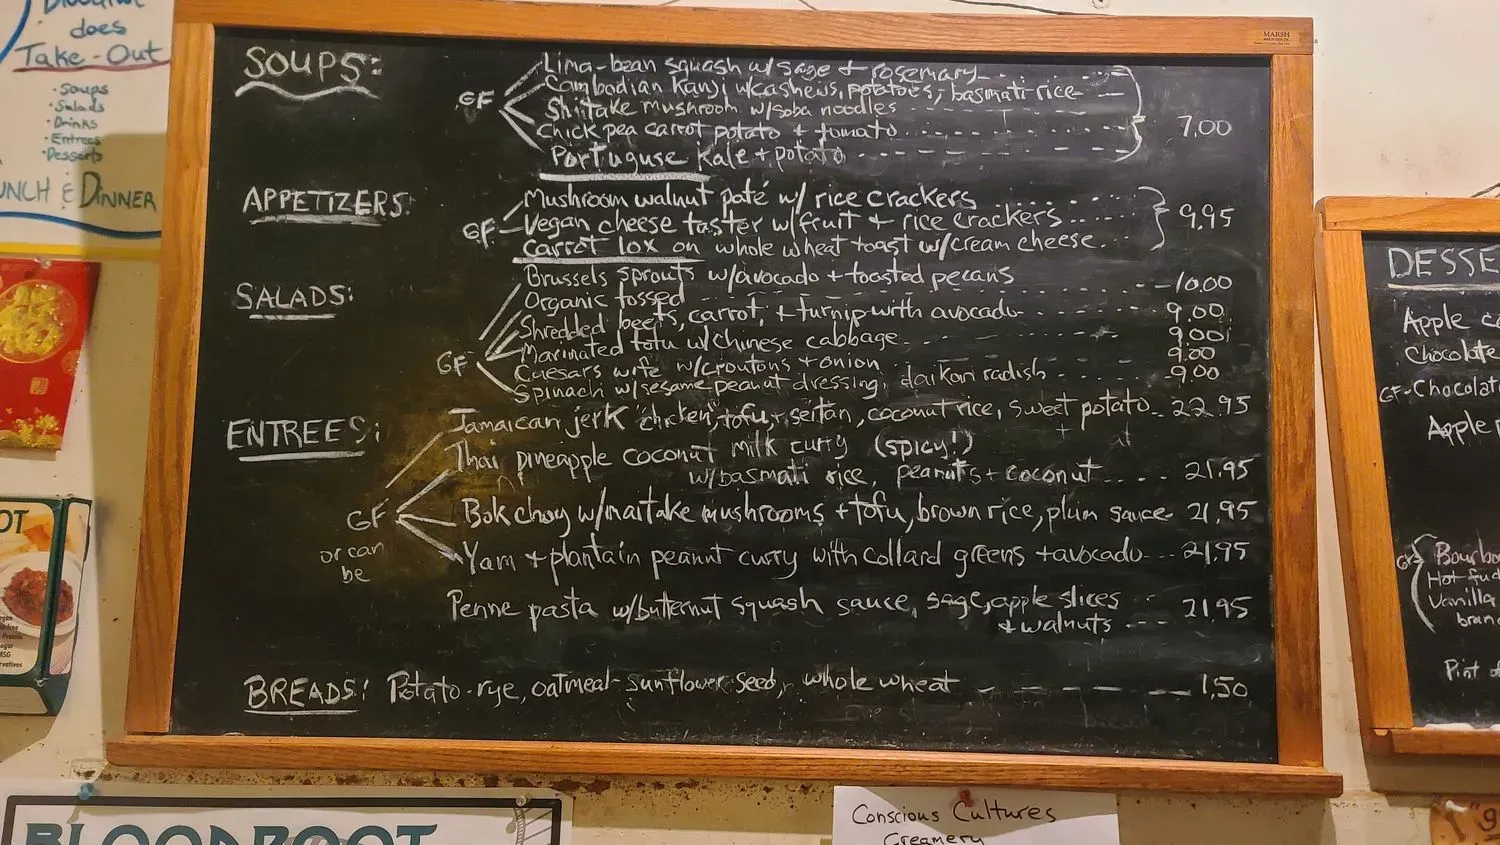 does
Take-Out
• Soups
• Salads
• Drinks
• Entrees
• Desserts
UNCH & DINNER
MARSH
SOUPS:
GF
Lima-bean squash w/ sage + rosemary
Cambodian Kanji w/cashews, potatoes, basmati rice
Shiitake mushroom w/soba noodles
Chick pea carrot potato + tomato
Portuguse kale + potato
7.00
APPETIZERS:
GF
Mushroom walnut paté w/ rice crackers
Vegan cheese taster w/fruit + rice crackers
Carrot lox on whole wheat toast w/cream cheese
9.95
SALADS:
GF
Brussels sprouts w/avocado + toasted pecans 10.00
Organic tossed 9.00
Shredded beets, carrot, + turnip with avocado 9.00
Marinated tofu w/Chinese cabbage 9.00
Caesars wife w/croutons + onion 9.00
Spinach w/sesame peanut dressing, daikon radish
ENTREES:
GF
or can
be
Jamaican jerk "chicken", tofu, seitan, coconut rice, sweet potato 22.95
Thai pineapple coconut milk curry (spicy!)
w/basmati rice, peanuts + coconut 21.95
Bok choy w/maitake mushrooms + tofu, brown rice, plum sauce 21.95
Yam + plantain peanut curry with collard greens + avocado 21.95
Penne pasta w/butternut squash sauce, sage, apple slices
+ walnuts 21.95
BREADS: Potato-rye, oatmeal-sunflower seed, whole wheat 1.50
DESSE
Apple c
Chocolate
GF-Chocolat
Apple
GF
Bourbo
Hot fud
Vanilla
bran
Pint o
OT
MSG
BLOODROOT
Conscious Cultures
Creamery